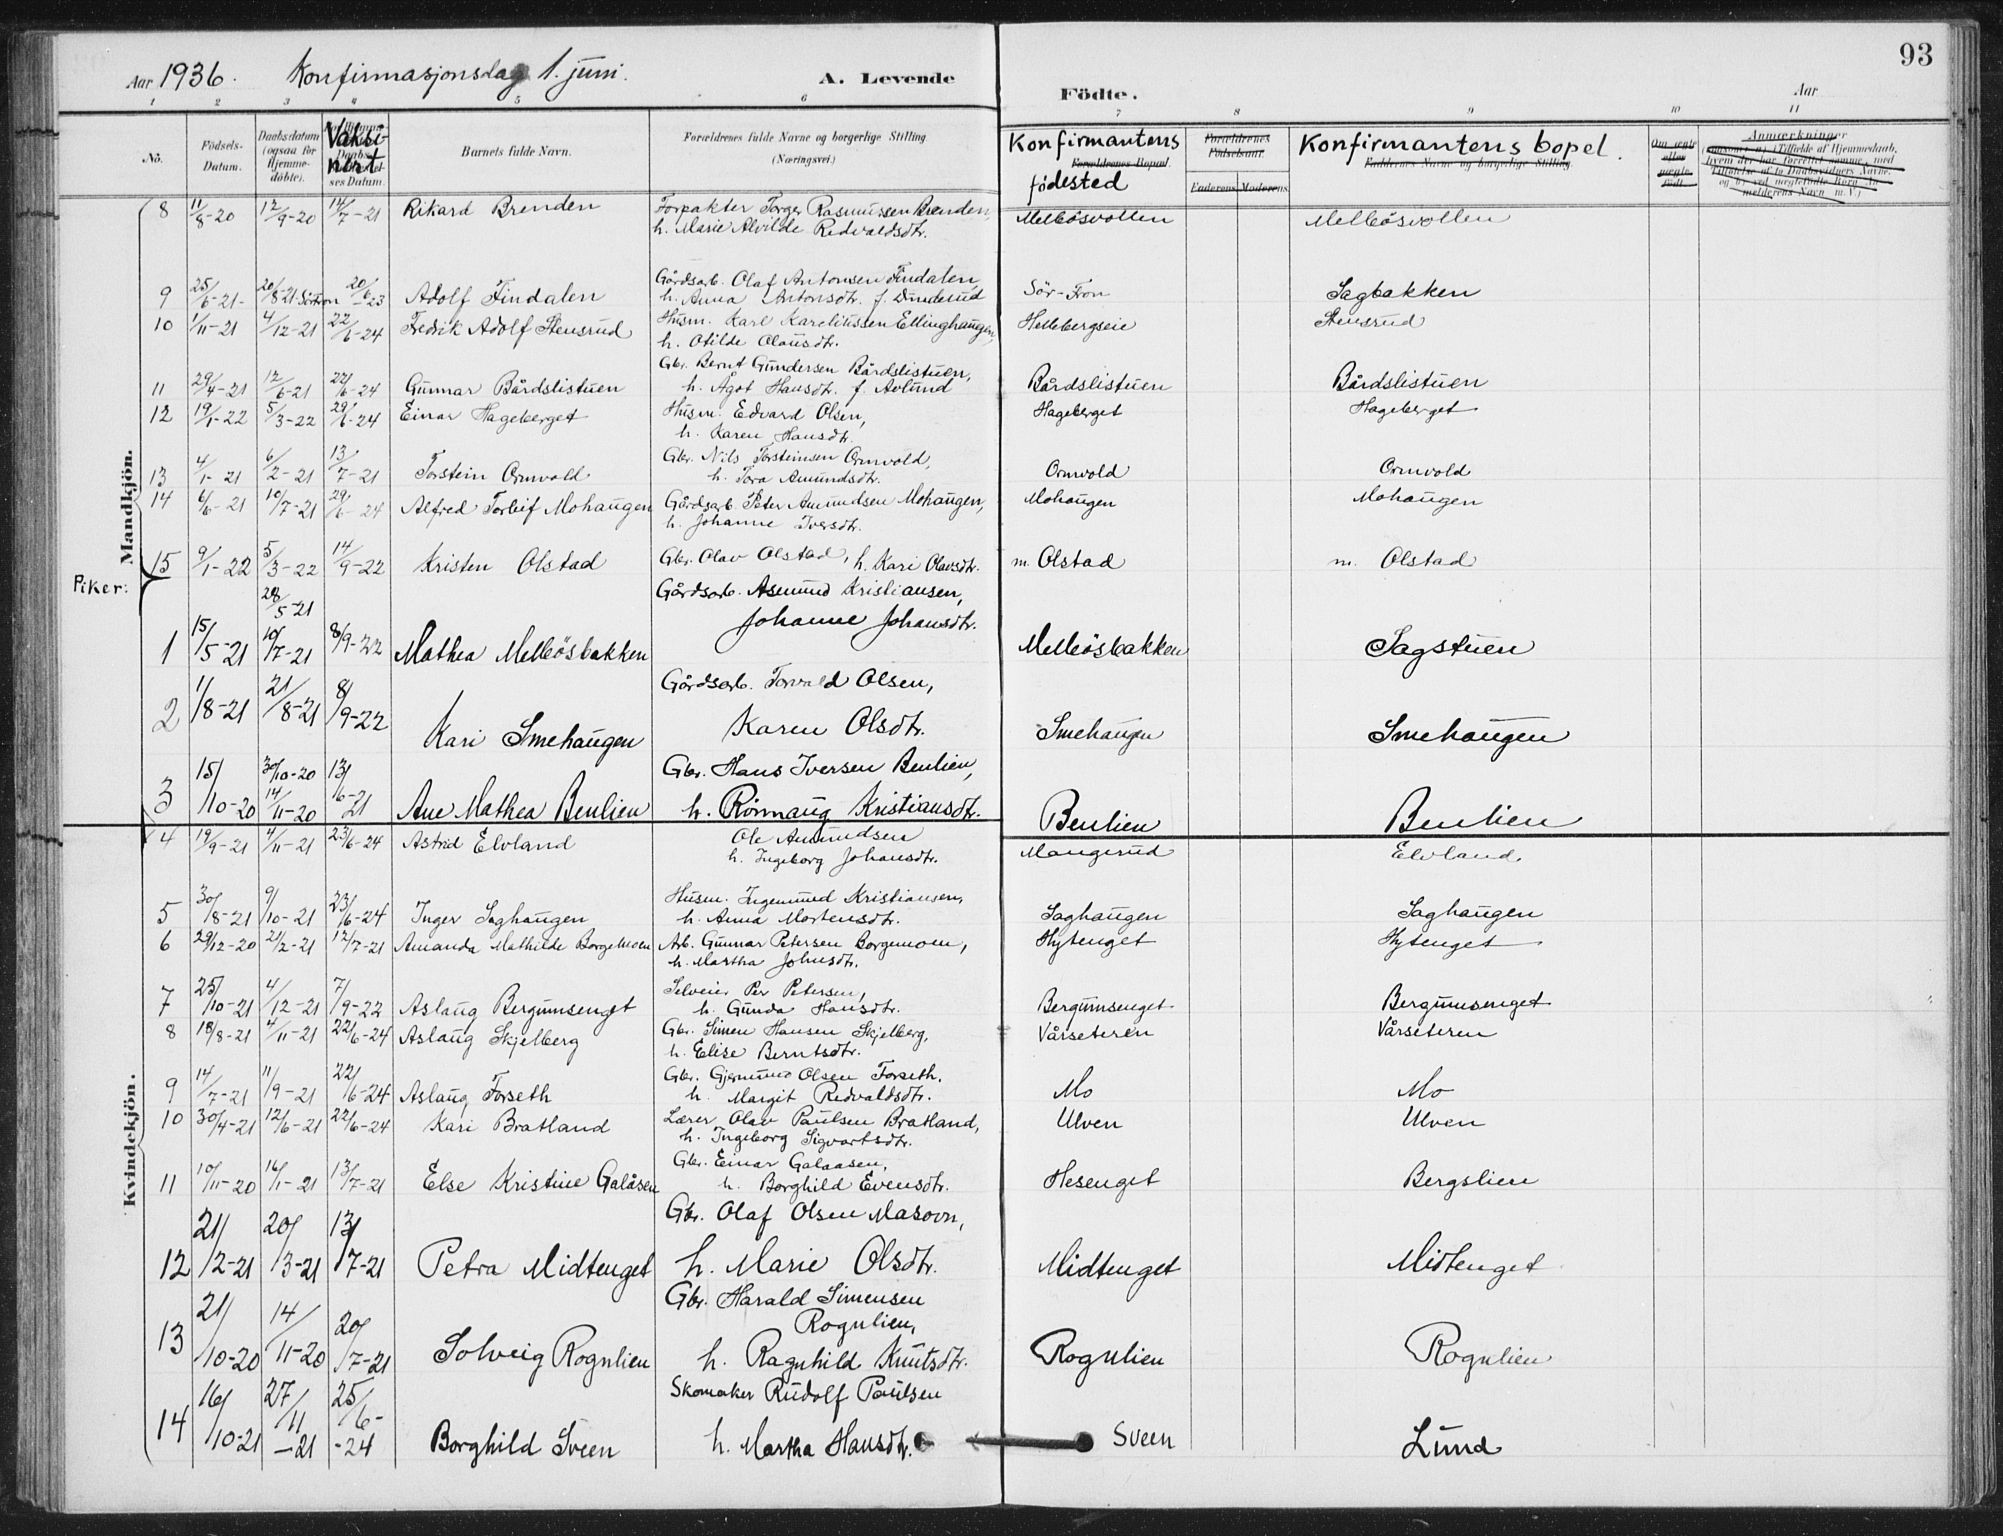 93
Aar 1936. Konfirmasjonsdag 1. juni. A. Levende Födte. Aar
1 2 3 4 5 6 7 8 9 10 11
No. Födsels-Datum. Daabsdatum (ogsaa for Hjemmedöbte). Vaksinert Barnets fulde Navn. Forældrenes fulde Navne og borgerlige Stilling (Næringsvei.) Konfirmantens födested Forældrenes Födselsaar. Faderens Moderens Konfirmantens bopel. Anmærkninger
Mandkjön.
8 11/8-20 12/9-20 14/7-21 Rikard Brenden Forpakter Torger Rasmussen Brenden, Mellösvollen Mellösvollen
h. Marie Alvilde Redvaldsdtr.
9 25/6-21- 20/8-21 20/6-23 Adolf Findalen Gårdsarb. Olaf Antonsen Findalen, Sör-Fron Sagbakken
h. Anna Antonsdtr. f. Dinderud
10 1/11-21 4/12-21 22/6-24 Fredik Adolf Stensrud Husm. Karl Karelitussen Ellinghaugen, Hellebergseie Stensrud
h. Otilde Olausdtr.
11 29/4-21 12/6-21 22/6-24 Gunnar Bårdslistuen Gbr. Bernt Gundersen Bårdslistuen, Bårdslistuen Bårdslistuen
h. Ågot Hansdtr. f. Avlund
12 19/1-22 5/3-22 29/6-24 Einar Hageberget Husm. Edvard Olsen, Hageberget Hageberget
h. Karen Hansdtr.
13 4/1-21 6/2-21 13/7-21 Torstein Ormvold Gbr. Nils Torsteinsen Ormvold, Ormvold Ormvold
h. Tora Amundsdtr.
14 6/6-21 10/7-21 29/6-24 Alfred Torleif Mohaugen Gårdsarb. Peter Amundsen Mohaugen, Mohaugen Mohaugen
h. Johanne Iversdtr.
15 9/1-22 5/3-22 14/9-22 Kristen Olstad Gbr. Olav Olstad, h. Kari Olavsdtr. m. Olstad m. Olstad
Piker:
1 15/5-21 28/5-21 10/7-21 8/9-22 Mathea Mellösbakken Gårdsarb. Asmund Kristiansen, Mellösbakken Sagstuen
Johanne Johansdtr.
2 1/8-21 21/8-21 8/9-22 Kari Smehaugen Gårdsarb. Torvald Olsen, Smehaugen Smehaugen
Karen Olsdtr.
3 15/10-20 30/10-20 14/11-20 13/6-21 Ane Mathea Benlien Gbr. Hans Iversen Benlien, Benlien Benlien
h. Rönnaug Kristiansdtr.
Kvindekjön.
4 19/9-21 4/11-21 23/6-24 Astrid Elvland Ole Amundsen Mangerud Elvland
h. Ingeborg Johansdtr.
5 30/8-21 9/10-21 23/6-24 Inger Saghaugen Husm. Ingemund Kristiansen, Saghaugen Saghaugen
h. Anna Mortensdtr.
6 29/12-20 21/2-21 12/7-21 Amanda Mathilde Borgemoen Arb. Gunnar Petersen Borgemoen, Hytenget Hytenget
h. Martha Johnsdtr.
7 25/10-21 4/12-21 7/9-22 Aslaug Bergumsenget Selveier Per Petersen, Bergumsenget Bergumsenget
h. Gunda Hansdtr.
8 18/8-21 4/11-21 22/6-24 Aslaug Skjelberg Gbr. Simen Hansen Skjelberg, Vårseteren Vårseteren
h. Elise Berntsdtr.
9 14/7-21 11/9-21 22/6-24 Aslaug Forseth Gbr. Gjermund Olsen Forseth. Mo Mo
h. Margit Redvaldsdtr.
10 30/4-21 12/6-21 22/6-24 Kari Bratland Lærer Olav Paulsen Bratland, Ulven Ulven
h. Ingeborg Sigvartsdtr.
11 10/11-20 16/1-21 13/7-21 Else Kristine Galåsen Gbr. Einar Galaasen, Hesenget Bergslien
h. Borghild Evensdtr.
12 21/12-21 20/3-21 13/7-21 Petra Midtenget Gbr. Olaf Olsen Masovn, Midtenget Midtenget
h. Marie Olsdtr.
13 21/10-20 14/11-20 20/7-21 Solveig Rognlien Gbr. Harald Simensen Rognlien, Rognlien Rognlien
h. Ragnhild Knutsdtr.
14 16/10-21 27/11-21 25/6-24 Borghild Sveen Skomaker Rudolf Paulsen Sveen Lund
h. Martha Hansdtr.